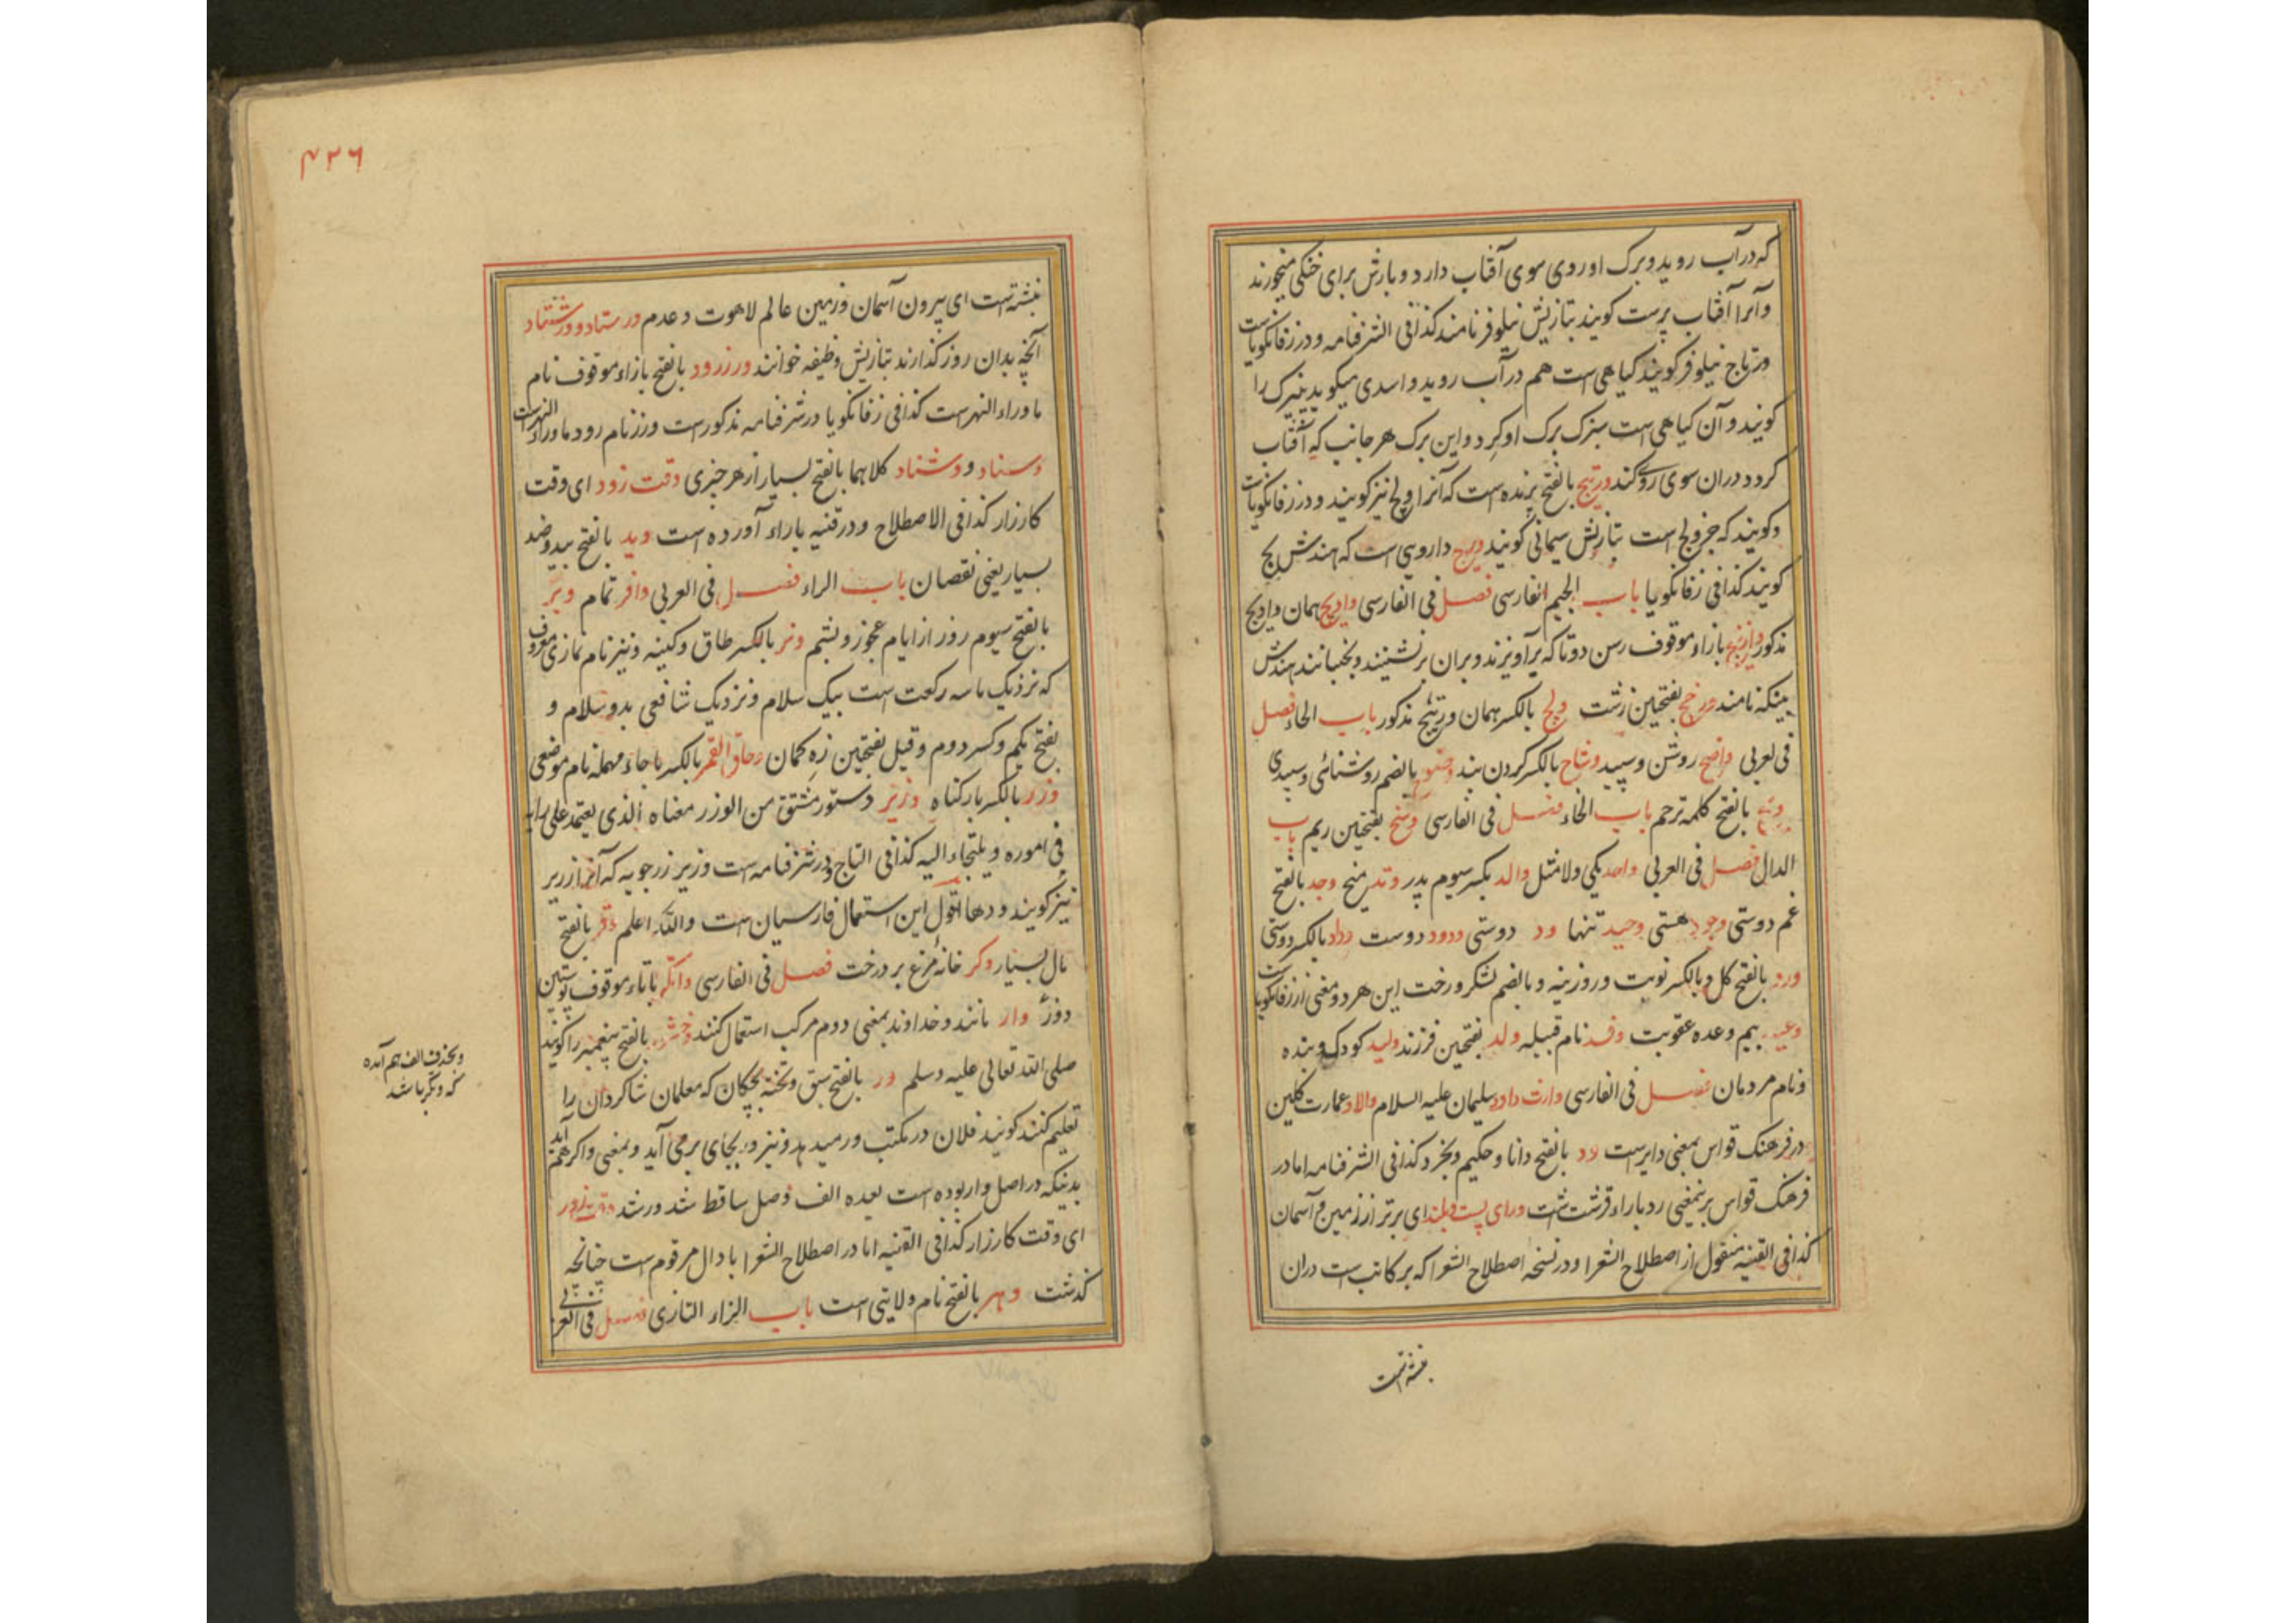 که در آب روید و برک او روی سوی آفتاب دارد و بارش برای خنکی میخورند
و آنرا آفتاب پرست کویند بتازیش نیلوفر نامند کذا فی الشرفنامه و در زفانکویاست
ورتاج نیلوفر کویند کیاهی است هم در آب روید و اسدی میکوید پنیرک را
کویند و آن کیاهی است سبزک برک او کرد و این برک هر جانب که آفتاب
کردد دران سوی روی کند ورتیج بالفتح پرنده است که آنرا ولج نیز کویند و در زفانکویاست
و کویند که جز ولج است بتازیش سمانی کویند ورج دارویی است که هندش بج
کویند کذا فی زفانکویا باب الجیم الفارسی فصل فی الفارسی وادیج همان وادیج
مذکور وازنیج بازاء موقوف رسن دوتا که برآویزند و بران برنشینند و بجنبانند هندش
پینکه نامند ورخج بفتحتین زشت ولج بالکسر همان ورتیج مذکور باب الحاء فصل
فی العربی واضح روشن و سپید وشاح بالکسر کردن بند وضوح بالضم روشنائی و سپیدی
بالفتح کلمه ترحم باب الخاء فصل فی الفارسی وسخ بفتحتین ریم باب
الدال فصل فی العربی واحد یکی و لا مثل والد بکسر سیوم پدر وتد میخ وجد بالفتح
غم دوستی وجود هستی وحید تنها ود دوستی ودود دوست وداد بالکسر دوستی
ورد بالفتح کل و بالکسر نوبت و روزینه و بالضم لشکر و رخت این هر دو معنی از زفانکویاست
وعید بیم و عده عقوبت وفد نام قبیله ولد بفتحتین فرزند ولید کودک و بنده
و نام مردمان فصل فی الفارسی وارث داود سلیمان علیه السلام والاد عمارت کلین
در فرهنک قواس بمعنی دایرست ود بالفتح دانا و حکیم و بخرد کذا فی الشرفنامه اما در
فرهنک قواس برینمعنی رد باراء قرشت است ورای پست و بلند ای برتر از زمین و آسمان
کذا فی القنیه منقول از اصطلاح الشعرا و در نسخه اصطلاح الشعرا که بر کاتب است دران
نبشته است
۴۳۶
نبشته است ای بیرون آسمان و زمین عالم لاهوت و عدم ورستاد و ورشتاد
آنچه بدان روز کذارند بتازیش وظیفه خوانند ورزرود بالفتح بازاء موقوف نام
ماوراء النهرست کذا فی زفانکویا در شرفنامه مذکورست ورز نام رود ماوراء النهرست
وسناد و وشناد کلاهما بالفتح بسیار از هر چیزی وقت زود ای وقت
کارزار کذا فی الاصطلاح و در قنیه باراء آورده است وید بالفتح بید و ضد
بسیار یعنی نقصان باب الراء فصل فی العربی وافر تمام وبر
بالفتح سیوم روز از ایام عجوز و پشم وتر بالکسر طاق و کینه و نیز نام نمازی معروف
که نزدیک ما سه رکعت است بیک سلام و نزدیک شافعی بدو سلام و
بفتح یکم و کسر دوم و قیل بفتحتین زه کمان وحاق القمر بالکسر با حاء مهمله نام موضعی
وزر بالکسر بار کناه وزیر دستور مشتق من الوزر معناه الذی یعتمد علی رایه
فی اموره و یلتجاء الیه کذا فی التاج و در شرفنامه است وزیر زرجوبه که آنرا زریر
نیز کویند و دها اقول این استعمال فارسیان است والله اعلم وقر بالفتح
مال بسیار وکر خانه مرغ بر درخت فصل فی الفارسی واتکر باتاء موقوف پوستین
دوز وار مانند و خداوند بمعنی دوم مرکب استعمال کنند وخشور بالفتح پیغمبر را کویند
صلی الله تعالی علیه و سلم ور بالفتح سبق و تخته بچکان که معلمان شاکردان را
تعلیم کنند کویند فلان در مکتب ور میدهد و نیز ور بجای بر می آید و بمعنی و اکر هم آید
بدنیکه در اصل و ار بوده است بعده الف وصل ساقط شد ور شد وقت زور
ای وقت کارزار کذا فی القنیه اما در اصطلاح الشعرا با دال مرقوم است چنانچه
کذشت وهر بالفتح نام ولایتی است باب الزاء التازی فصل فی العربی
و بحذف الف هم آمده
که وکر باشد